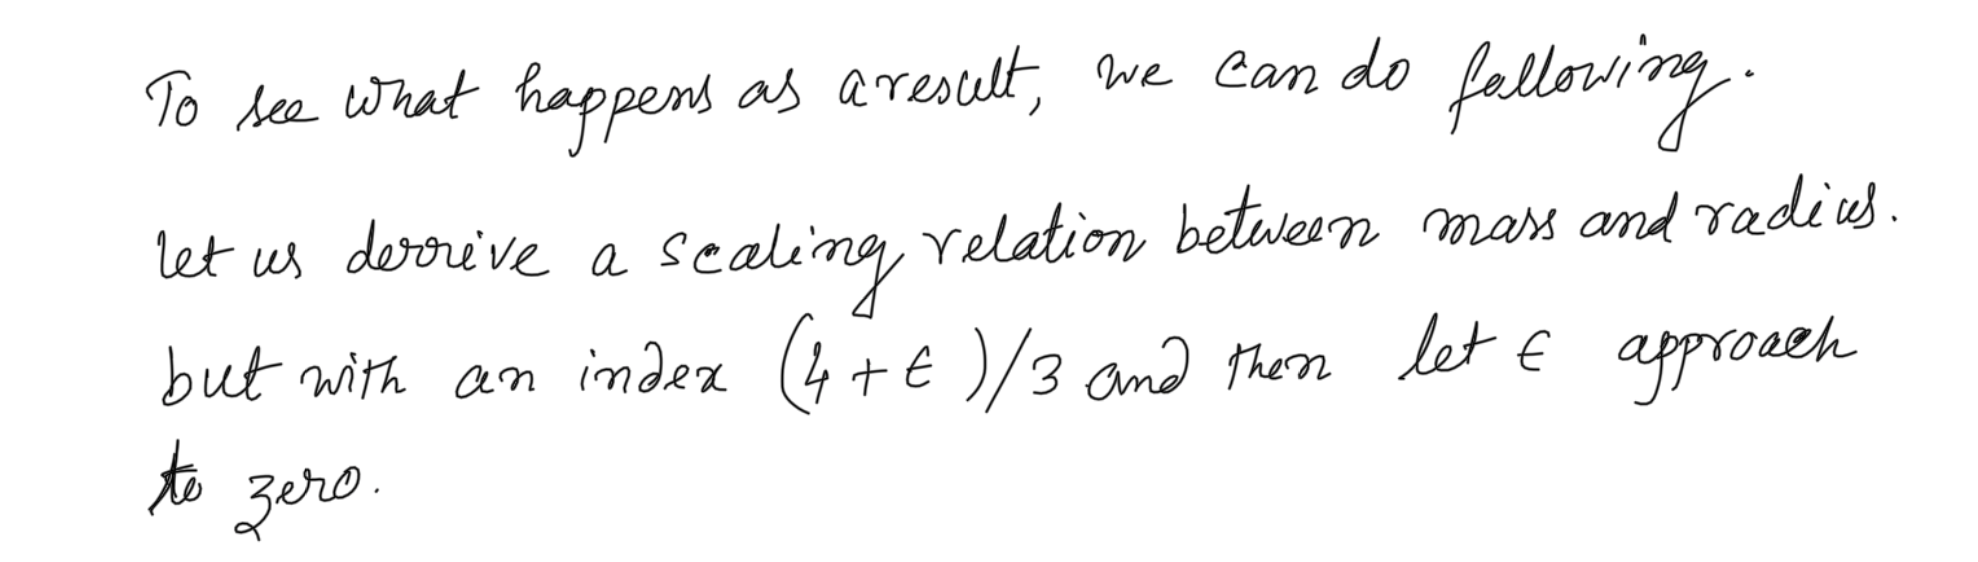 To see what happens as a result, we can do following.
let us derive a scaling relation between mass and radius.
but with an index (4+ϵ)/3 and then let ϵ approach
to zero.